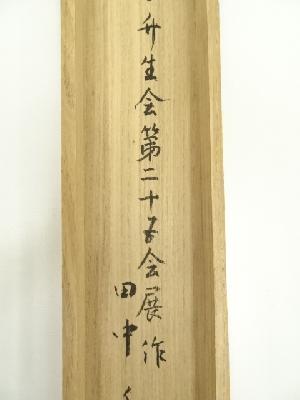 升生会第二十五会展作
田中